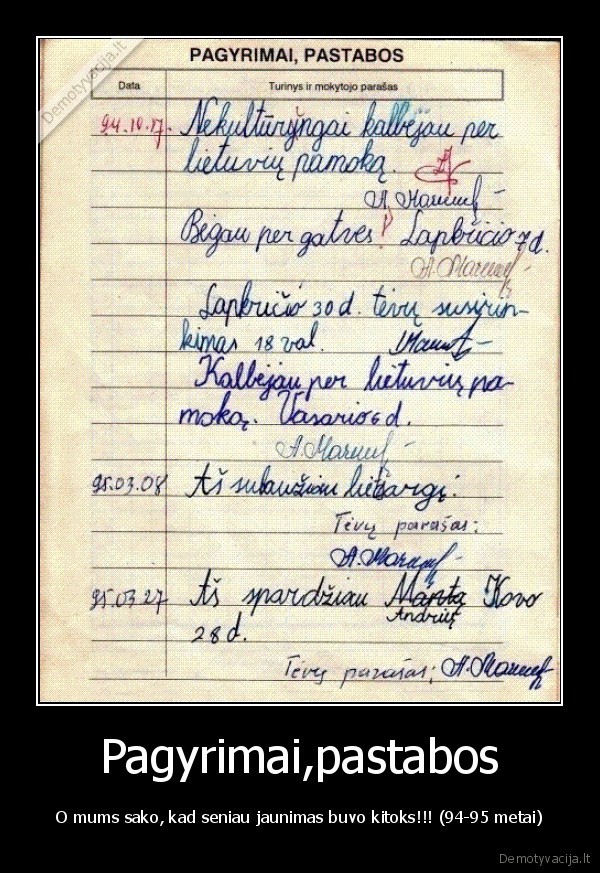 Demotyvacija.lt
PAGYRIMAI, PASTABOS
Data Turinys ir mokytojo parašas
94.10.17. Nekultūringai kalbėjau per
lietuvių pamoką.
Bėgau per gatves! Lapkričio 7 d.
Lapkričio 30 d. tėvų susirin-
kimas 18 val.
Kalbėjau per lietuvių pa-
moką. Vasario 6 d.
95.03.08 Aš sulaužiau lietsargį.
Tėvų parašas:
95.03 27 Aš spardžiau Mantą Kovo
Andrių
28 d.
Tėvų parašas;
Pagyrimai,pastabos
O mums sako, kad seniau jaunimas buvo kitoks!!! (94-95 metai)
Demotyvacija.lt